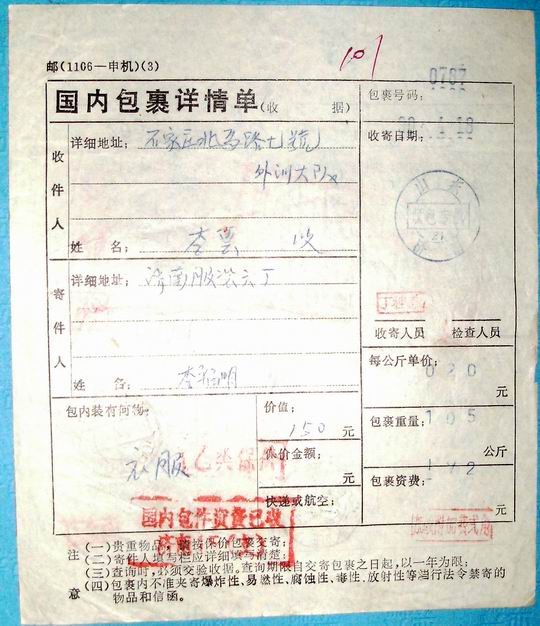 邮(1106—申机)(3)
101
国内包裹详情单(收 据)
包裹号码:
0787
收件人
详细地址:
石家庄北马路七号
外训大队
收寄日期:
姓 名:
李 收
寄件人
详细地址:
济南服装六厂
姓 名:
李 明
收寄人员 检查人员
每公斤单价:
020 元
包内装有何物:
衣服
价值:
150 元
包裹重量:
105 公斤
保价金额:
元
包裹资费:
192 元
快递或航空:
国内包件资费已改
注意
(一)贵重物品,请按保价包裹交寄;
(二)寄件人填写栏应详细填写清楚;
(三)查询时,必须交验收据。查询期限自交寄包裹之日起,以一年为限;
(四)包裹内不准夹寄爆炸性、易燃性、腐蚀性、毒性、放射性等端行法令禁寄的
物品和信函。